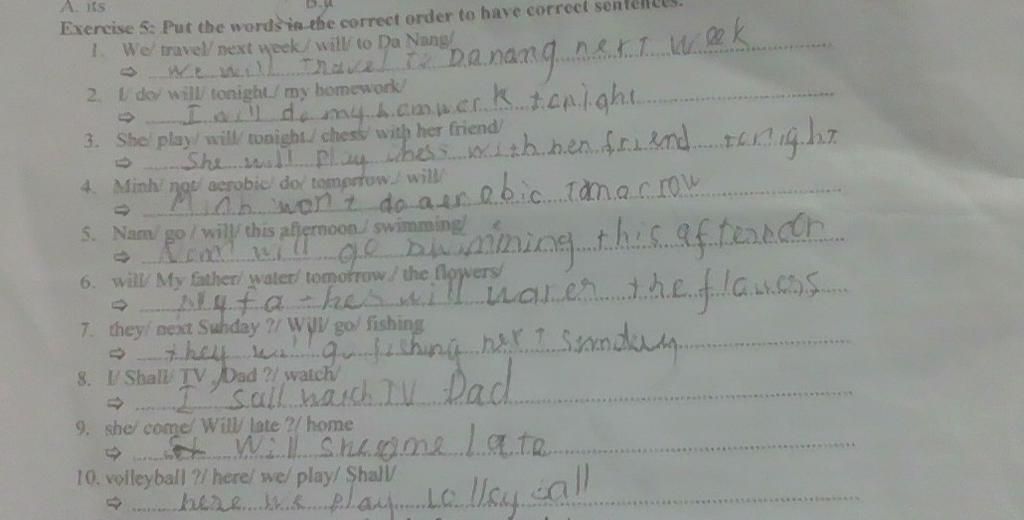 A. its
Exercise 5: Put the words in the correct order to have correct sentences.
1. We/ travel/ next week/ will/ to Da Nang/
⇨ We will Travel To Danang next week
2. I/ do/ will/ tonight/ my homework/
⇨ I will do my homwerk tonight
3. She/ play/ will/ tonight/ chess/ with her friend/
⇨ She will Play chess with hen friend tonight
4. Minh/ not/ aerobic/ do/ tomorrow/ will/
⇨ Minh won't do aerobic Tomorrow
5. Nam/ go/ will/ this afternoon/ swimming/
⇨ Nam will go swimming this afternoon
6. will/ My father/ water/ tomorrow/ the flowers/
⇨ My father will the
7. they/ next Sunday ?/ Will/ go/ fishing
⇨ they will go fishing next
8. I/ Shall/ TV , Dad ?/ watch/
⇨ I sall watch TV Dad
9. she/ come/ Will/ late ?/ home
⇨ Will she late
10. volleyball ?/ here/ we/ play/ Shall/
⇨ here we play